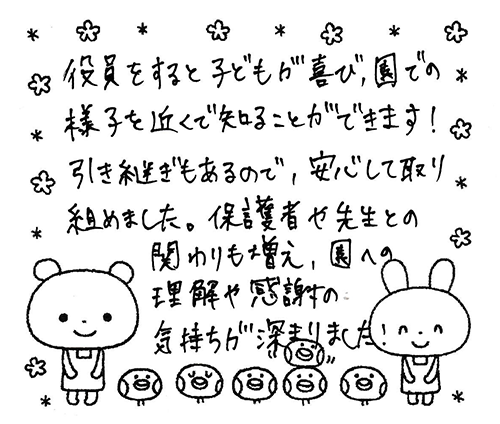 役員をすると子どもが喜び,園での
様子を近くで知ることができます!
引き継ぎもあるので,安心して取り
組めました。保護者や先生との
関わりも増え,園への
理解や感謝の
気持ちが深まりました!